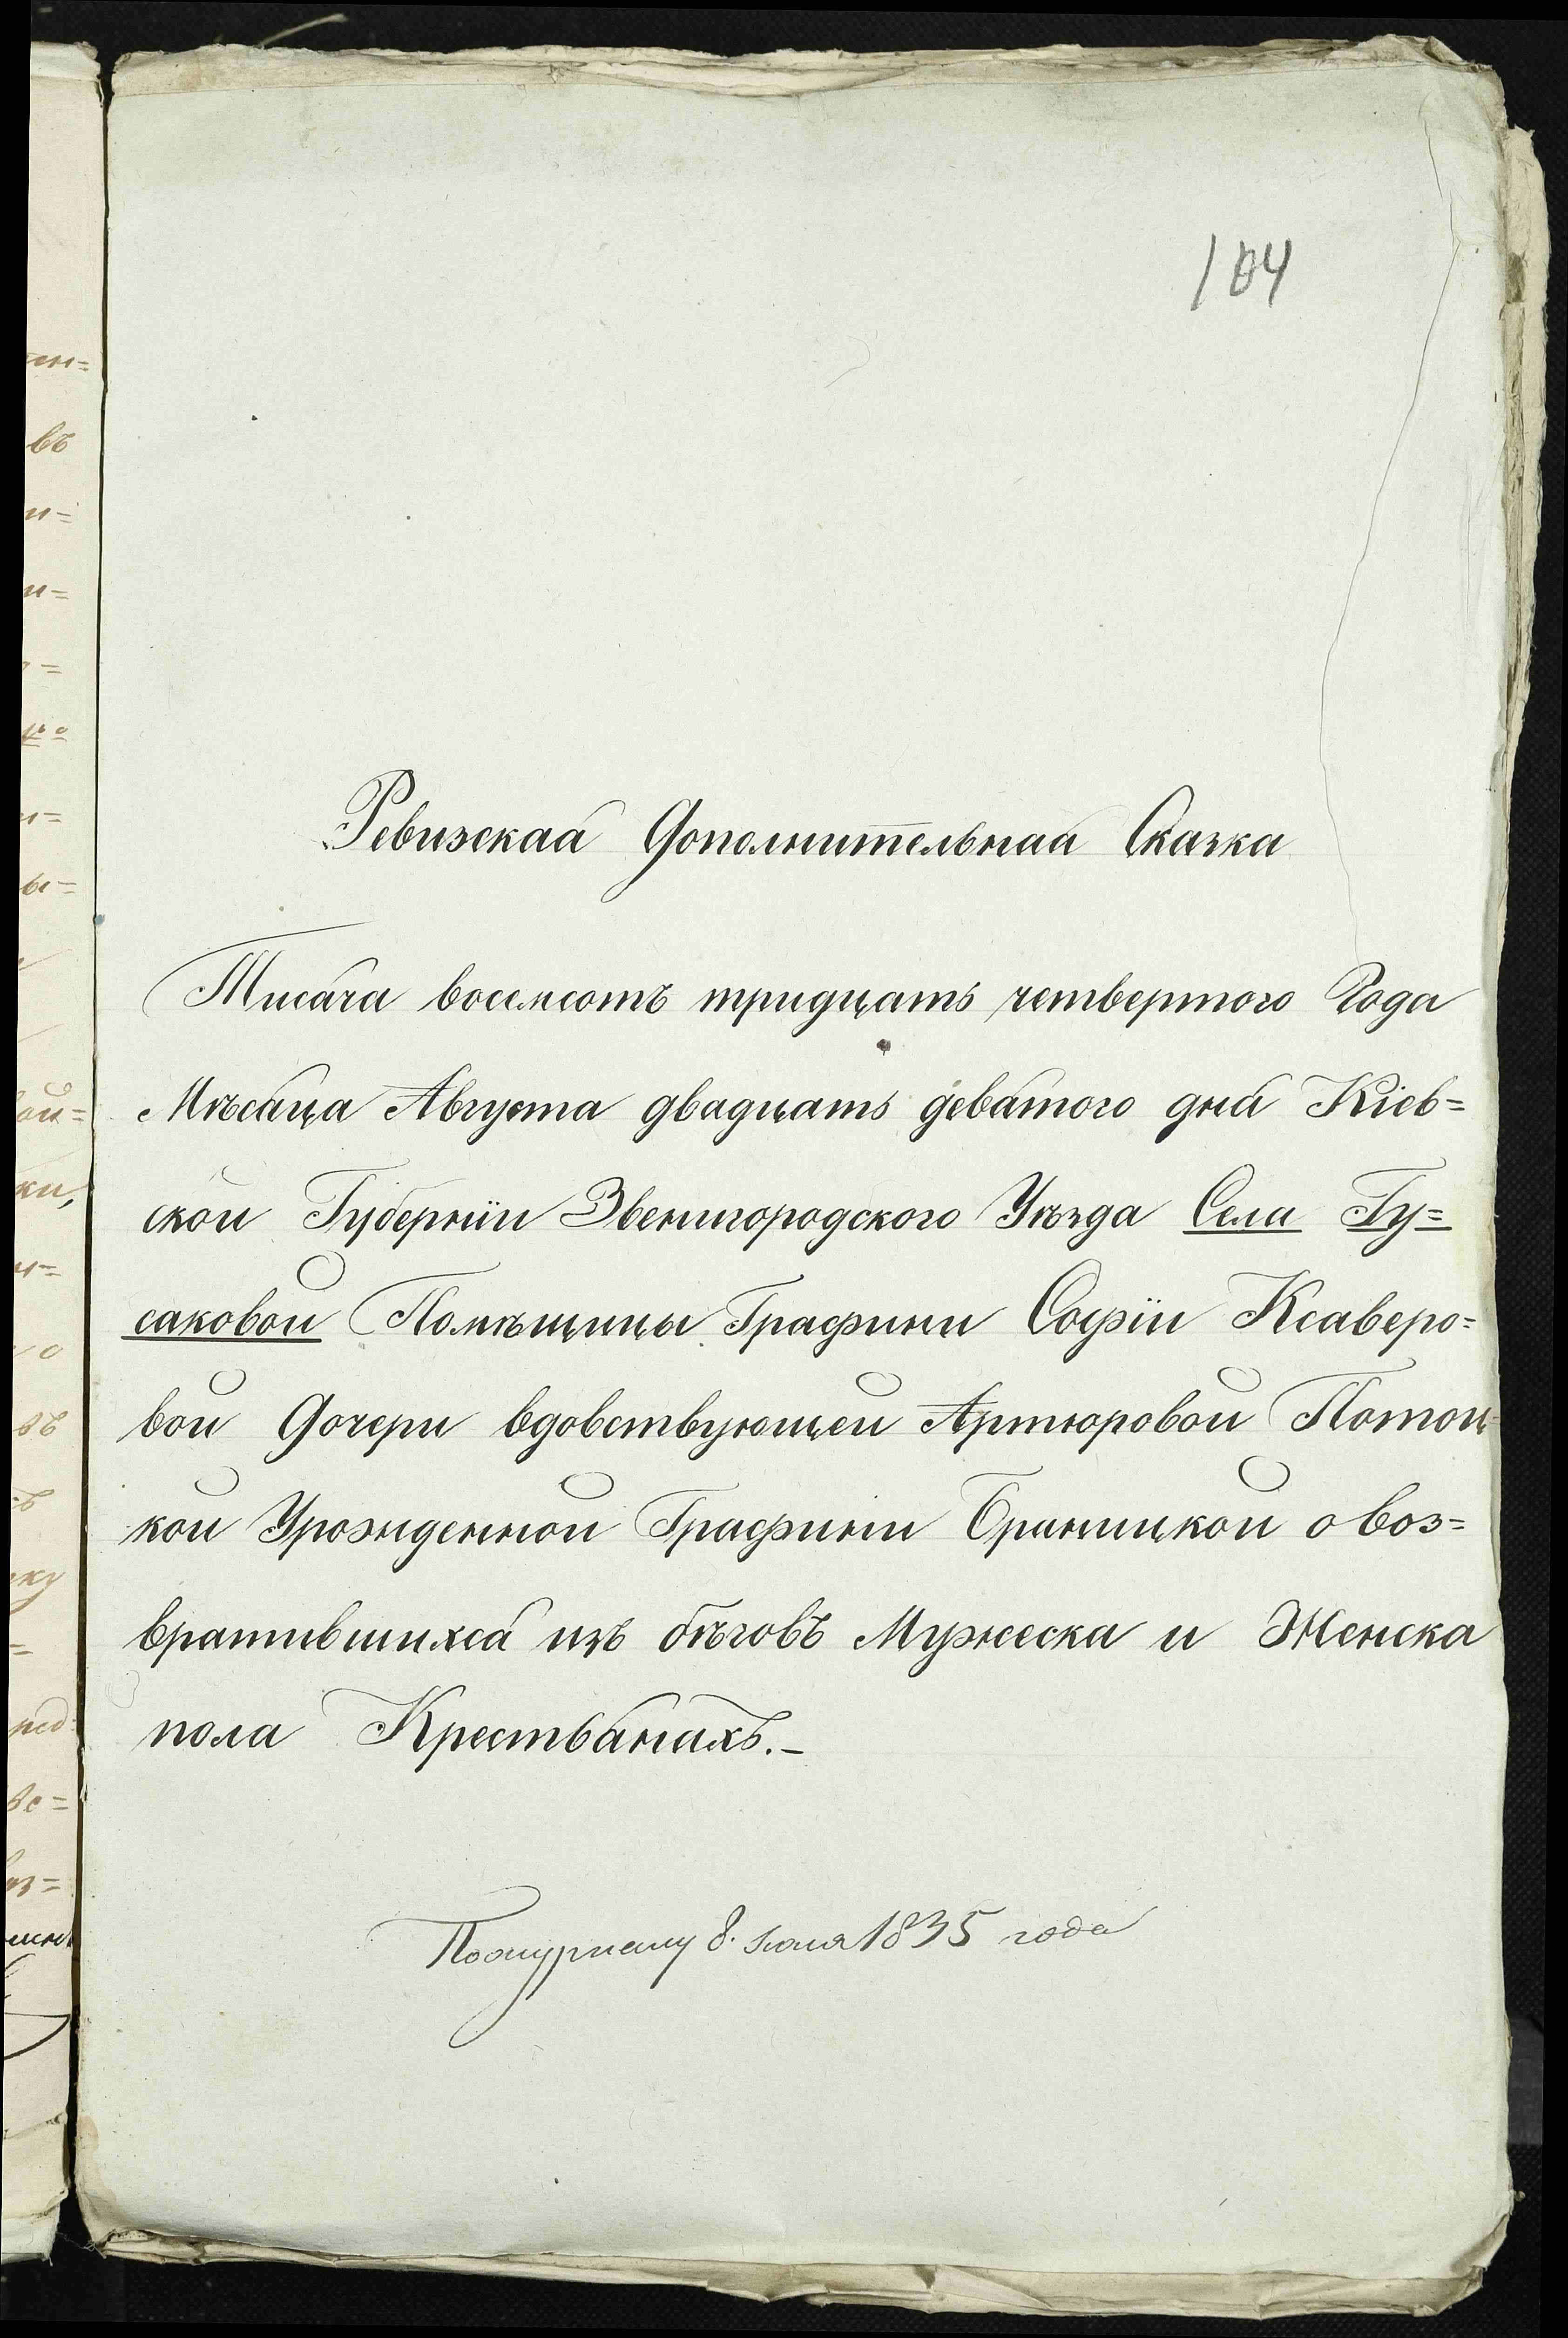 104
Ревизская Дополнительная Сказка
Тисяча восемсотъ тридцать четвертого Года
Мѣсяца Августа двадцать девятого дня Кіев=
ской Губерніи Звенигородского Уѣзда Села Гу=
саковой Помѣщицы Графини Софіи Ксаверо=
вой Дочери вдовствующей Артюровой Потоц=
кой Урожденной Графини Браницкой о воз=
вратившихся изъ бѣговъ Мужеска и Женска
пола Крестьянахъ.–
8. 1835 года